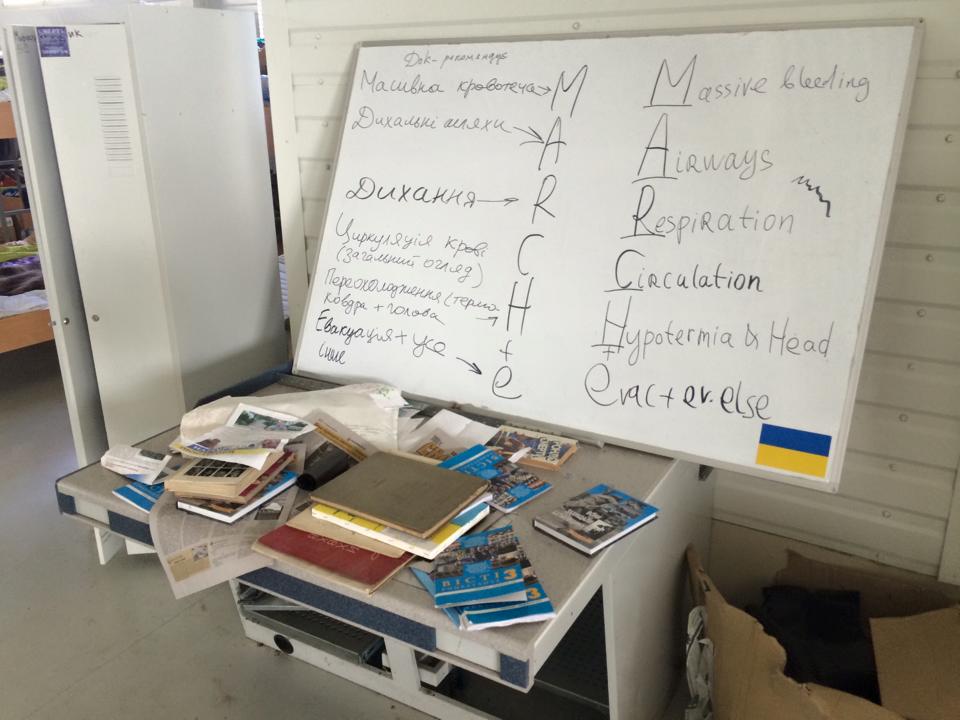 Док- рекомендує
Масивна кровотеча → M
Дихальні шляхи → A
Дихання → R
Циркуляція крові C
(загальний огляд)
Переохолодження (термо
ковдра + голова → H
Евакуація + усе +
інше → e
Massive bleeding
Airways
Respiration
Circulation
Hypotermia & Head
+
evac + ev. else
ВІСТІ 3